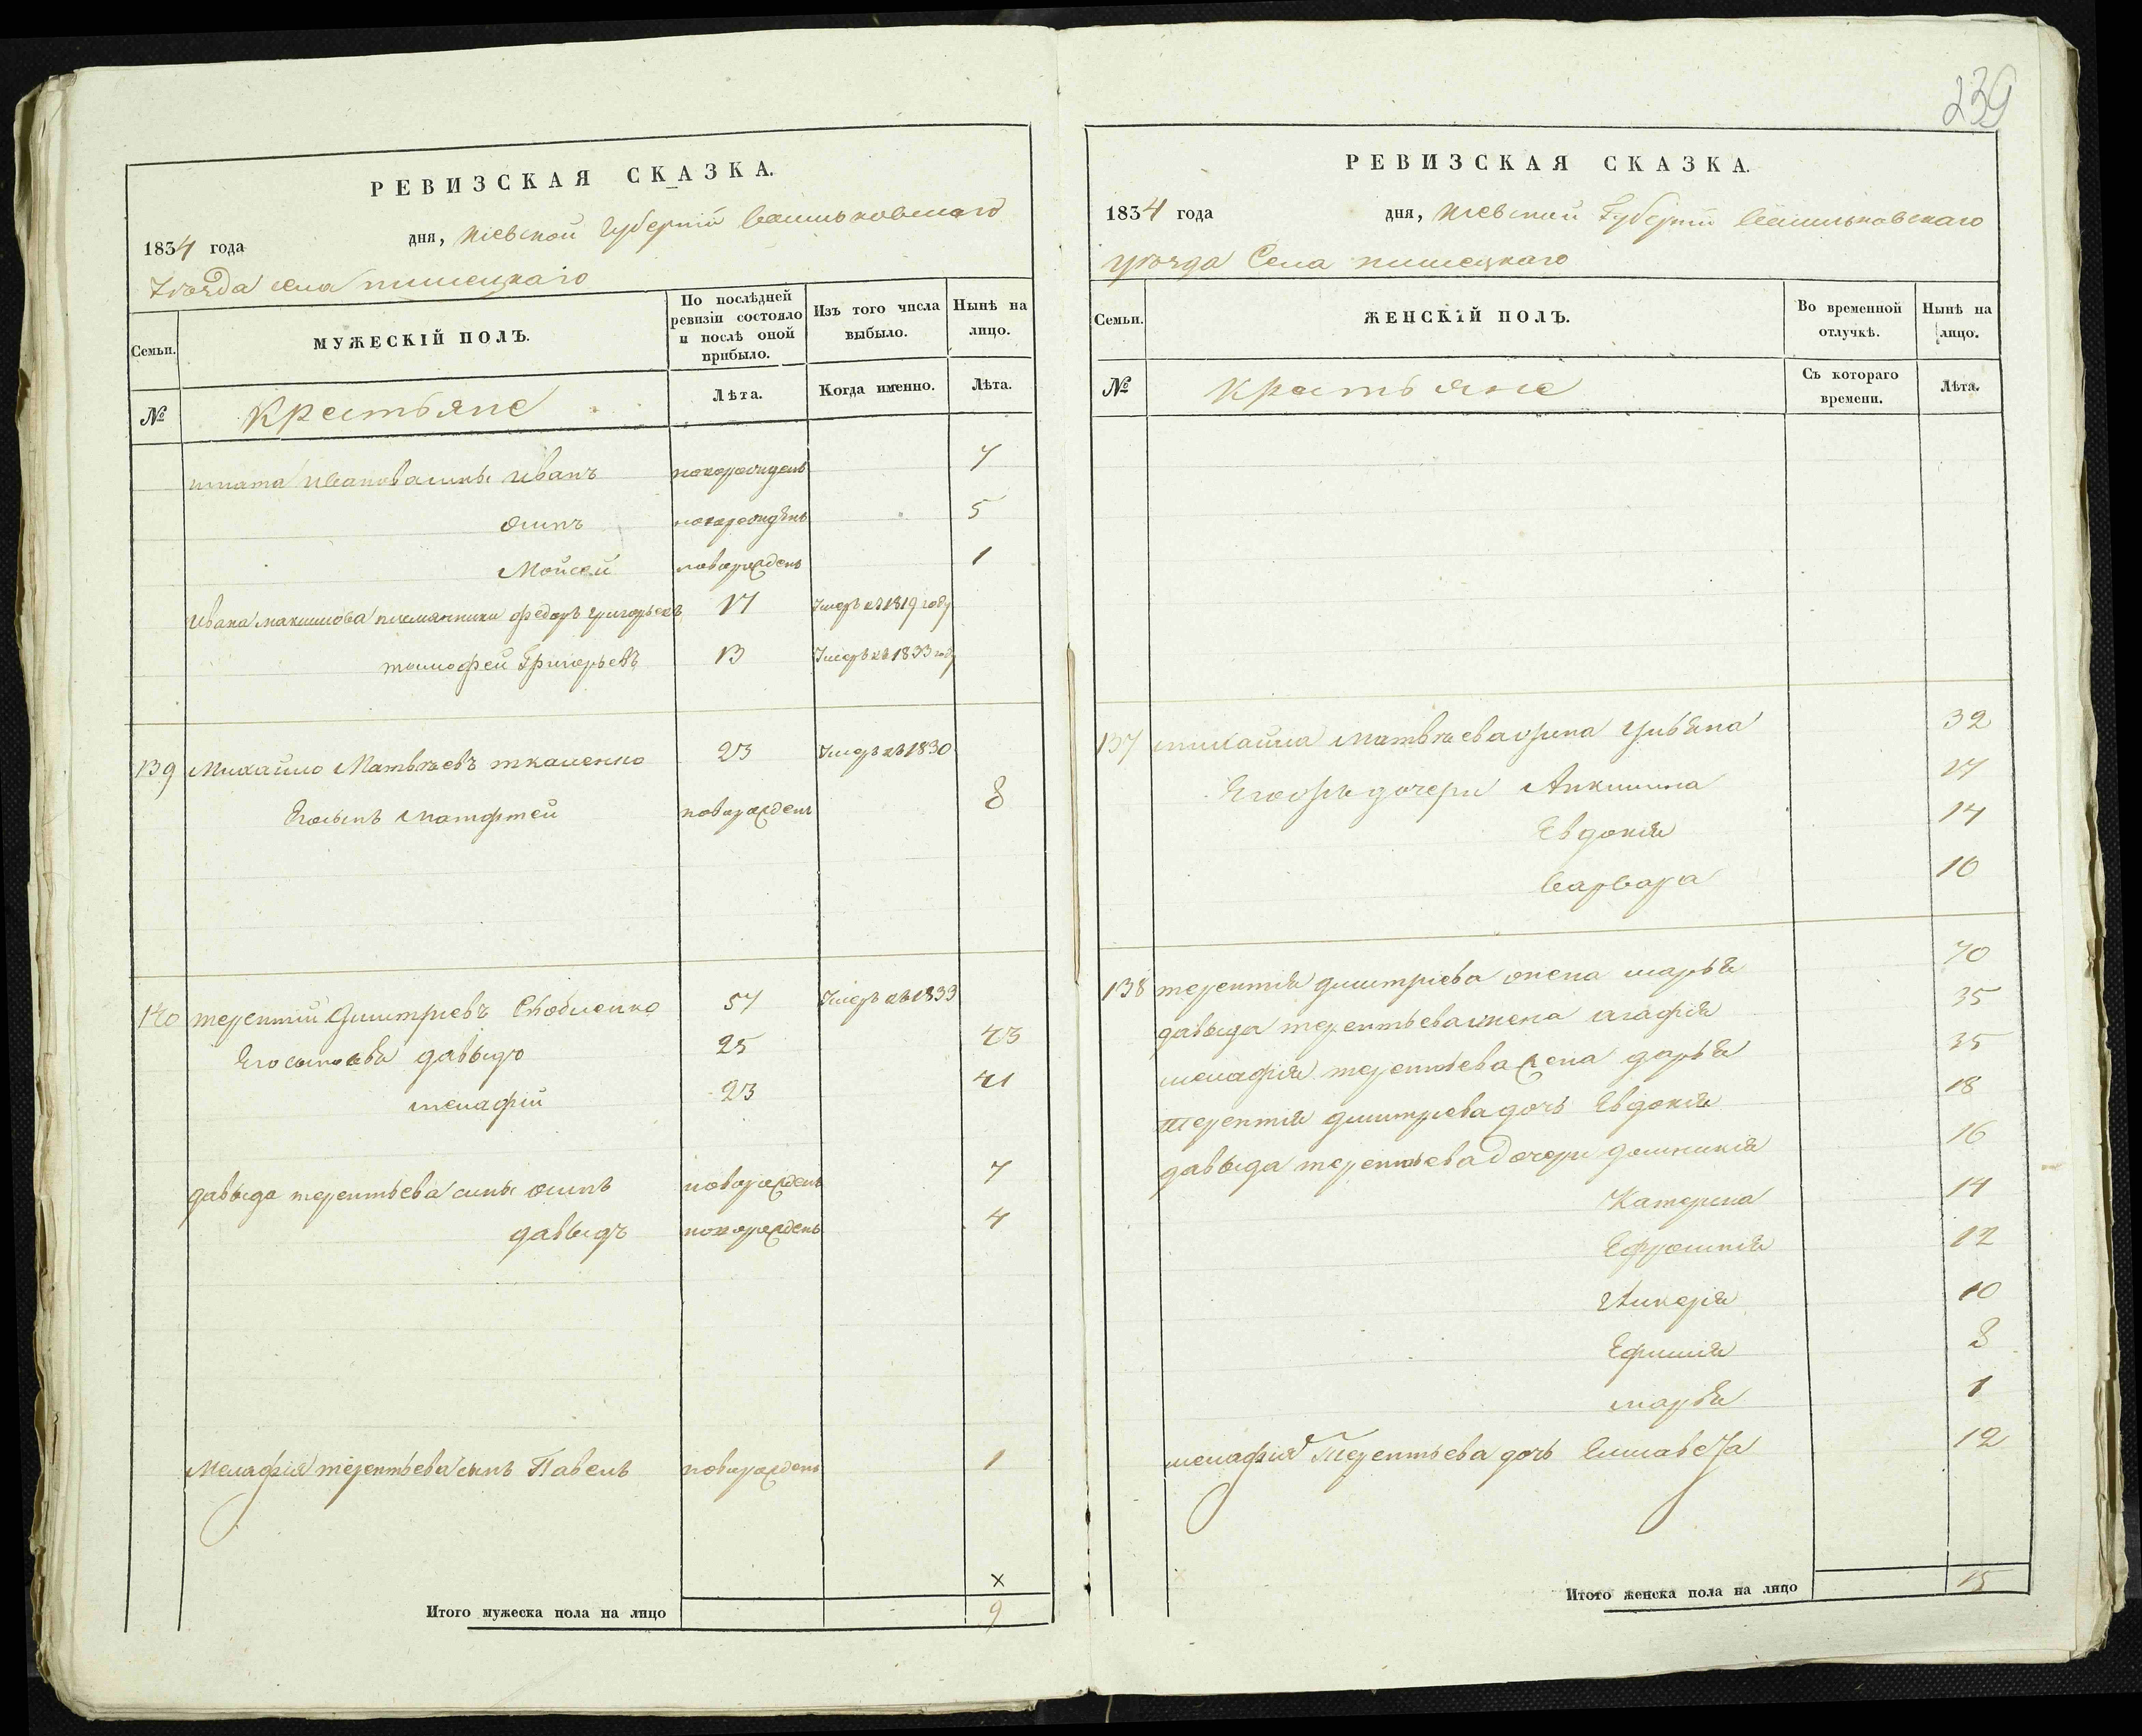 239
РЕВИЗСКАЯ СКАЗКА.
1834 года дня, Кіевской Губерніи Васильковскаго
Уѣзда села
Семьи.
МУЖЕСКІЙ ПОЛЪ.
По послѣдней ревизіи состояло и послѣ оной прибыло.
Изъ того числа выбыло.
Нынѣ на лицо.
№
Крестьяне
Лѣта.
Когда именно.
Лѣта.
Иванъ новорожденъ 7
Осипъ новорожденъ 5
Мойсей новорожденъ 1
Ивана Максимова племянники Федоръ Григорьевъ 17 Умеръ въ 1819 году
Тимофей Григорьевъ 13 Умеръ въ 1833 году
139 Михайло Матвѣевъ Ткаченко 23 Умеръ въ 1830
Его сынъ Матфтей новорожденъ 8
140 Терентій Дмитріевъ 57 Умеръ въ 1833
Его сыновья Давыдъ 25 43
Мелафій 23 41
Давыда Терентьева сыны Осипъ новорожденъ 7
Давыдъ новорожденъ 4
Мелафія Терентьева сынъ Павелъ новорожденъ 1
х
Итого мужеска пола на лицо 9
РЕВИЗСКАЯ СКАЗКА.
1834 года дня, Кіевской Губерніи Васильковскаго
уѣзда Села
Семьи.
ЖЕНСКІЙ ПОЛЪ.
Во временной отлучкѣ.
Нынѣ на лицо.
№
Крестьяне
Съ котораго времени.
Лѣта.
137 Михайла Матвѣева жена Ульяна 32
дочери 17
Евдокія 14
Варвара 10
138 Терентія Дмитріева жена Марья 70
Давыда Терентьева жена Агафія 35
Мелафія Терентьева жена Дарья 35
Терентія Дмитріева дочь Евдокія 18
Давыда Терентьева Дочери Домникія 16
Катерина 14
Ефросинія 12
10
Ефимія 8
Марья 1
Мелафія Терентьева дочь Елисавета 12
Итого женска пола на лицо 15